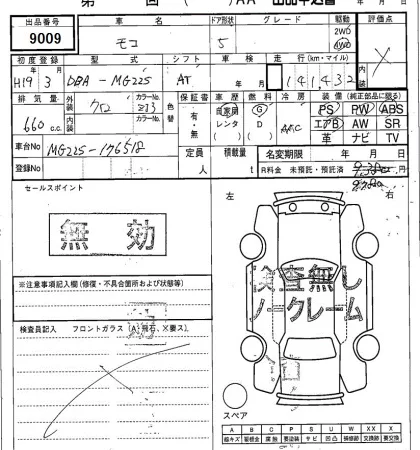 第 回 ( )AA 出品申込書 年 月 日
出品番号 9009
車名 モコ
ドア形状 5
グレード
駆動 2WD 4WD
評価点
内装
初度登録 H19 3
型式 DBA-MG22S
シフト AT
車検 年 月
走行(km・マイル) 141,432
排気量 660 c.c.
外装 クロ
内装
カラーNo. ZJ3
カラーNo.
色替
保証書 有・無
車歴 自家用 レンタ ( )
燃料 G D ( )
冷房 AAC
装備 (純正部品に限る)
PS PW ABS
エアB AW SR
革 ナビ TV
車台No MG22S-176518
登録No
定員 人
積載量 t
名変期限 年 月 日
R料金 未預託・預託済 円
セールスポイント
無効
左 右
※注意事項記入欄(修復・不具合箇所および状態等)
検査無し
ノークレーム
検査員記入 フロントガラス (A、飛石、X要ス)
スペア
A B C P S U W X XX
線キズ 要板金 腐蝕 要塗装 サビ 凹凸 補修跡 交換跡 要交換